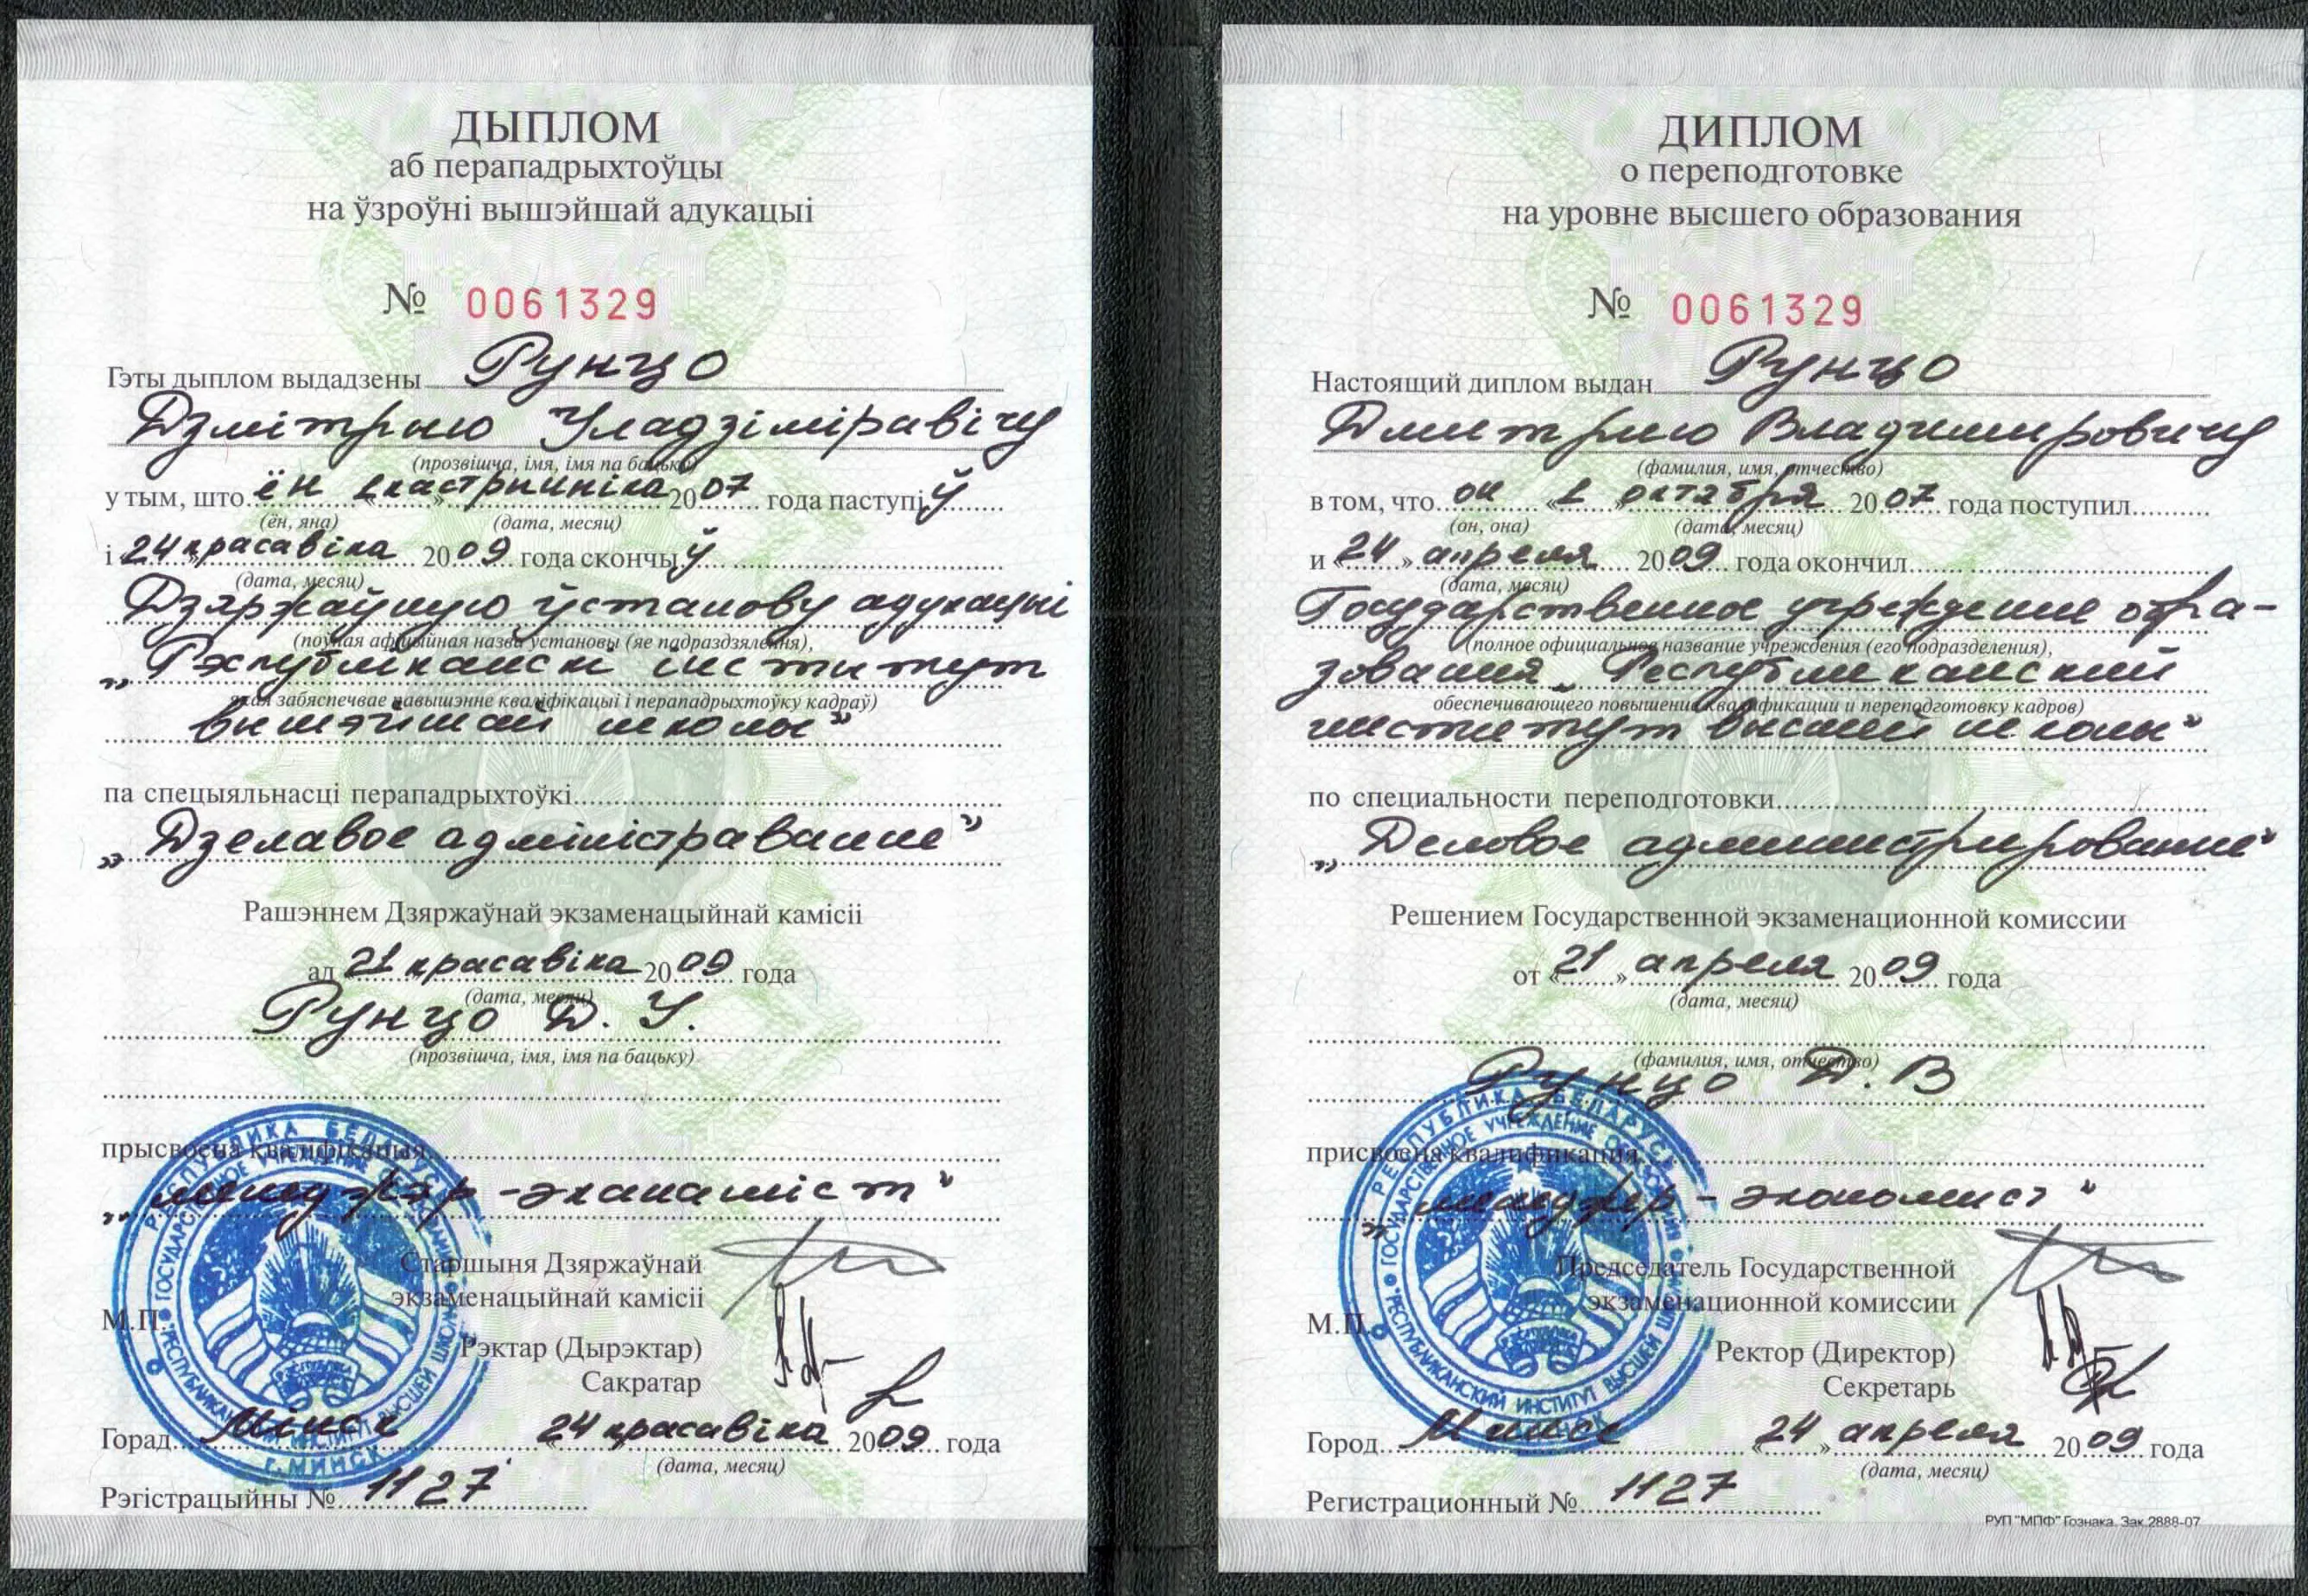 ДЫПЛОМ
аб перападрыхтоўцы
на ўзроўні вышэйшай адукацыі
№ 0061329
Гэты дыплом выдадзены Рунцо
Дзмітрыю Уладзіміравічу
(прозвішча, імя, імя па бацьку)
у тым, што ён 1 кастрычніка 2007 года паступіў
(ён, яна) (дата, месяц)
і 24 красавіка 2009 года скончыў
(дата, месяц)
Дзяржаўную ўстанову адукацыі
(поўная афіцыйная назва ўстановы (яе падраздзялення),
„Рэспубліканскі інстытут
якая забяспечвае павышэнне кваліфікацыі і перападрыхтоўку кадраў)
вышэйшай школы"
па спецыяльнасці перападрыхтоўкі
„Дзелавое адміністраванне"
Рашэннем Дзяржаўнай экзаменацыйнай камісіі
ад 21 красавіка 2009 года
(дата, месяц)
Рунцо Д. У.
(прозвішча, імя, імя па бацьку)
прысвоена кваліфікацыя
„менеджэр-эканаміст"
Старшыня Дзяржаўнай
экзаменацыйнай камісіі
М.П.
Рэктар (Дырэктар)
Сакратар
Горад Мінск 24 красавіка 2009 года
(дата, месяц)
Рэгістрацыйны № 1127
ДИПЛОМ
о переподготовке
на уровне высшего образования
№ 0061329
Настоящий диплом выдан Рунцо
Дмитрию Владимировичу
(фамилия, имя, отчество)
в том, что он «1» октября 2007 года поступил
(он, она) (дата, месяц)
и «24» апреля 2009 года окончил
(дата, месяц)
Государственное учреждение обра-
(полное официальное название учреждения (его подразделения),
зования „Республиканский
обеспечивающего повышение квалификации и переподготовку кадров)
институт высшей школы"
по специальности переподготовки
„Деловое администрирование"
Решением Государственной экзаменационной комиссии
от «21» апреля 2009 года
(дата, месяц)
(фамилия, имя, отчество)
Рунцо Д. В
присвоена квалификация
„менеджер-экономист"
Председатель Государственной
экзаменационной комиссии
М.П.
Ректор (Директор)
Секретарь
Город Минск «24» апреля 2009 года
(дата, месяц)
Регистрационный № 1127
РУП "МПФ" Гознака. Зак.2888-07
РЕСПУБЛИКА БЕЛАРУСЬ
ГОСУДАРСТВЕННОЕ УЧРЕЖДЕНИЕ ОБРАЗОВАНИЯ
"РЕСПУБЛИКАНСКИЙ ИНСТИТУТ ВЫСШЕЙ ШКОЛЫ"
г. МИНСК